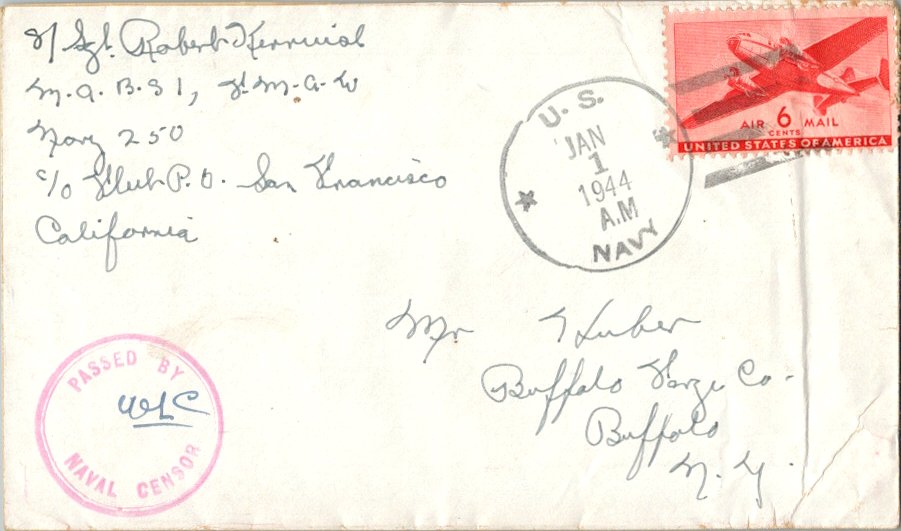 S/Sgt. Robert
M.A.B.S 1, 1st M.A.W
Navy 250
c/o Fleet P.O. San Francisco
California
U.S.
JAN
1
1944
A.M
NAVY
AIR 6 MAIL
CENTS
UNITED STATES OF AMERICA
Mr Huber
Buffalo Forge Co.
Buffalo
N.Y.
PASSED BY
NAVAL CENSOR